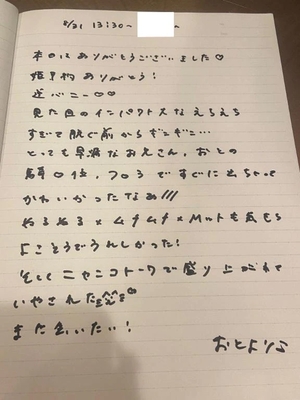 8/31 13:30~
本日はありがとうございました♡
ありがとう!
逆バニー♡♡
見た目のインパクト大なえちえち
すぎて脱ぐ前からギンギン…
とっても早漏なお兄さん、おとの
フロうですぐに出ちゃって
かわいかったなぁ///
ぬるぬる×ムチムチ×Mットも気もち
よこそうでうれしかった!
そしてニャンコトークで盛り上がれて
いやされた♡
また会いたい!
おとより